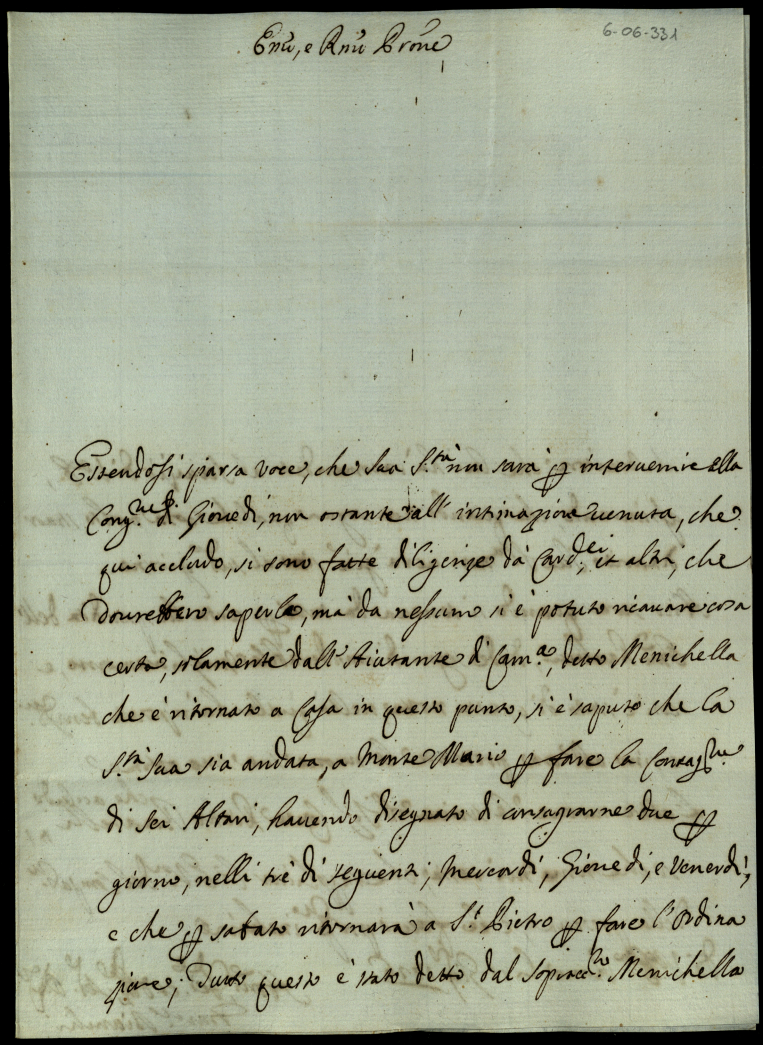 6-06-331
Em̃o, e Rm̃o Prōne
Essendosi sparsa voce, che Sua S.tà non sarà p̱ interuenire alla
Cong.ne di Giouedi, non ostante all' intimazione uenuta, che
qui accludo, si sono fatte diligenze da Card.li, et altri, che
dourebbero saperlo, mà da nessuno si è potuto ricauare cosa
certa, solamente dall' Aiutante di Cam.a, detto Menichella
che è ritornato a Casa in questo punto, si è saputo che la
S.tà Sua sia andata, a Monte Mario p̱ fare la Consag.ne
di sei Altari, hauendo disegnato di consagrarne due p̱
giorno, nelli trè dì seguenti; Mercordì, Giouedi, e Venerdì,
e che p̱ sabato ritornarà a S.t Pietro p̱ fare l'Ordina
zione; Tutto questo è stato detto dal sopracc.to Menichella